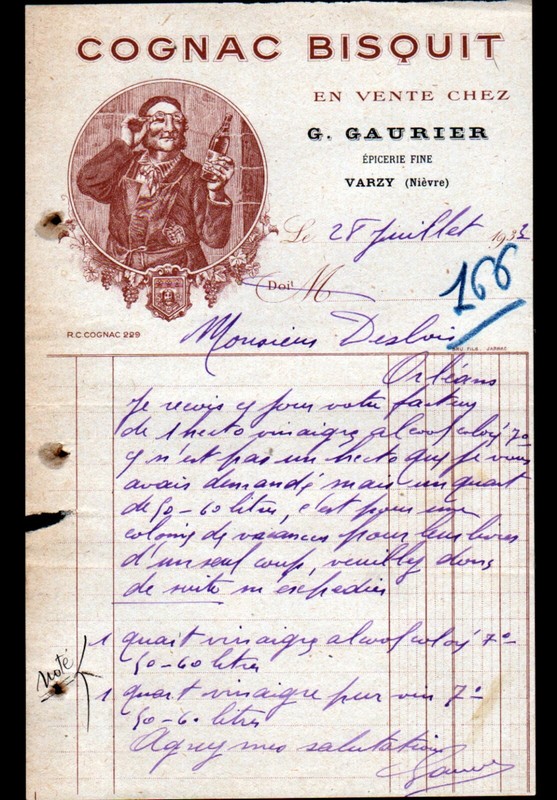 COGNAC BISQUIT
EN VENTE CHEZ
G. GAURIER
ÉPICERIE FINE
VARZY (Nièvre)
Le 28 Juillet 1933
Doit M
166
R.C. COGNAC 229
Monsieur Desbois
FILS. JARNAC
Orléans
Je reçois ce jour votre facture
de 1 hecto vinaigre alcool coloré 7°
ce n'est pas un hecto que je vous
avais demandé mais un quart
de 50-60 litres, c'est pour une
colonie de vacances pour leur livrer
d'un seul coup, veuillez donc
de suite m'expédier
noté
1 quart vinaigre alcool coloré 7°
50-60 litres
1 quart vinaigre pur vin 7°
50-60 litres
Agréez mes salutations